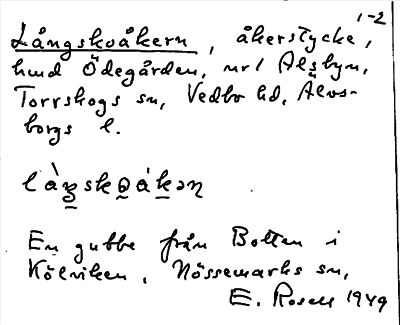 1-2
Långskoåkern, åkerstycke,
hmd Ödegården, nr 1 Alsbyn,
Torrskogs sn, Vedbo hd, Älvs-
borgs l.
En gubbe från Botten i
Kölviken, Nössemarks sn,
E. Rosell 1949